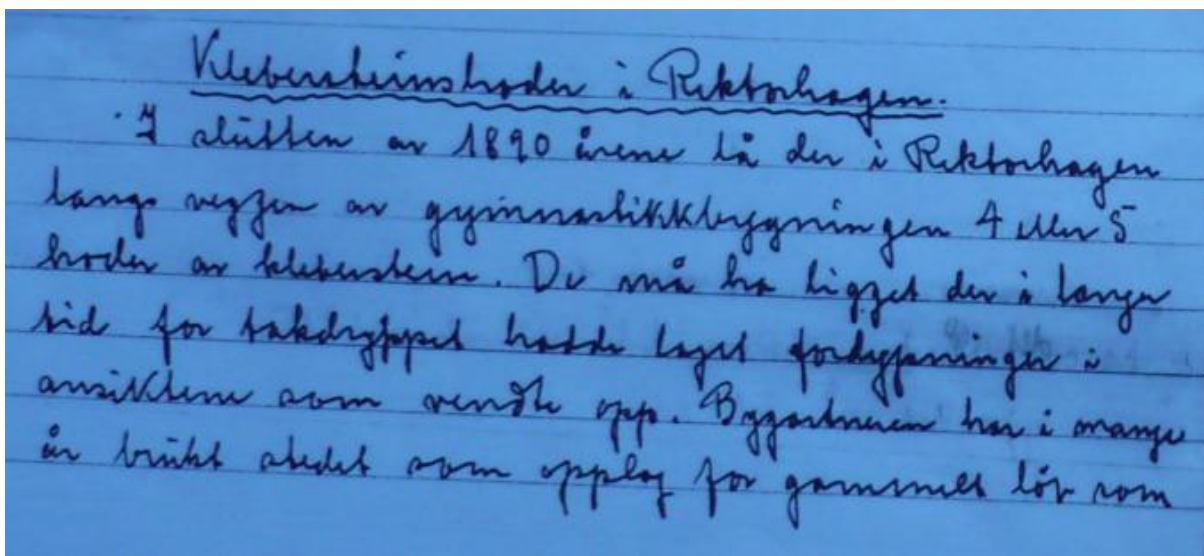 Klebersteinshoder i Rektorhagen.
I slutten av 1890 årene lå der i Rektorhagen
langs veggen av gymnastikkbygningen 4 eller 5
hoder av kleberstein. De må ha ligget der i lengre
tid for takdryppet hadde laget fordypninger i
ansiktene som vendte opp. Bygartneren har i mange
år brukt stedet som opplag for gammelt løv som